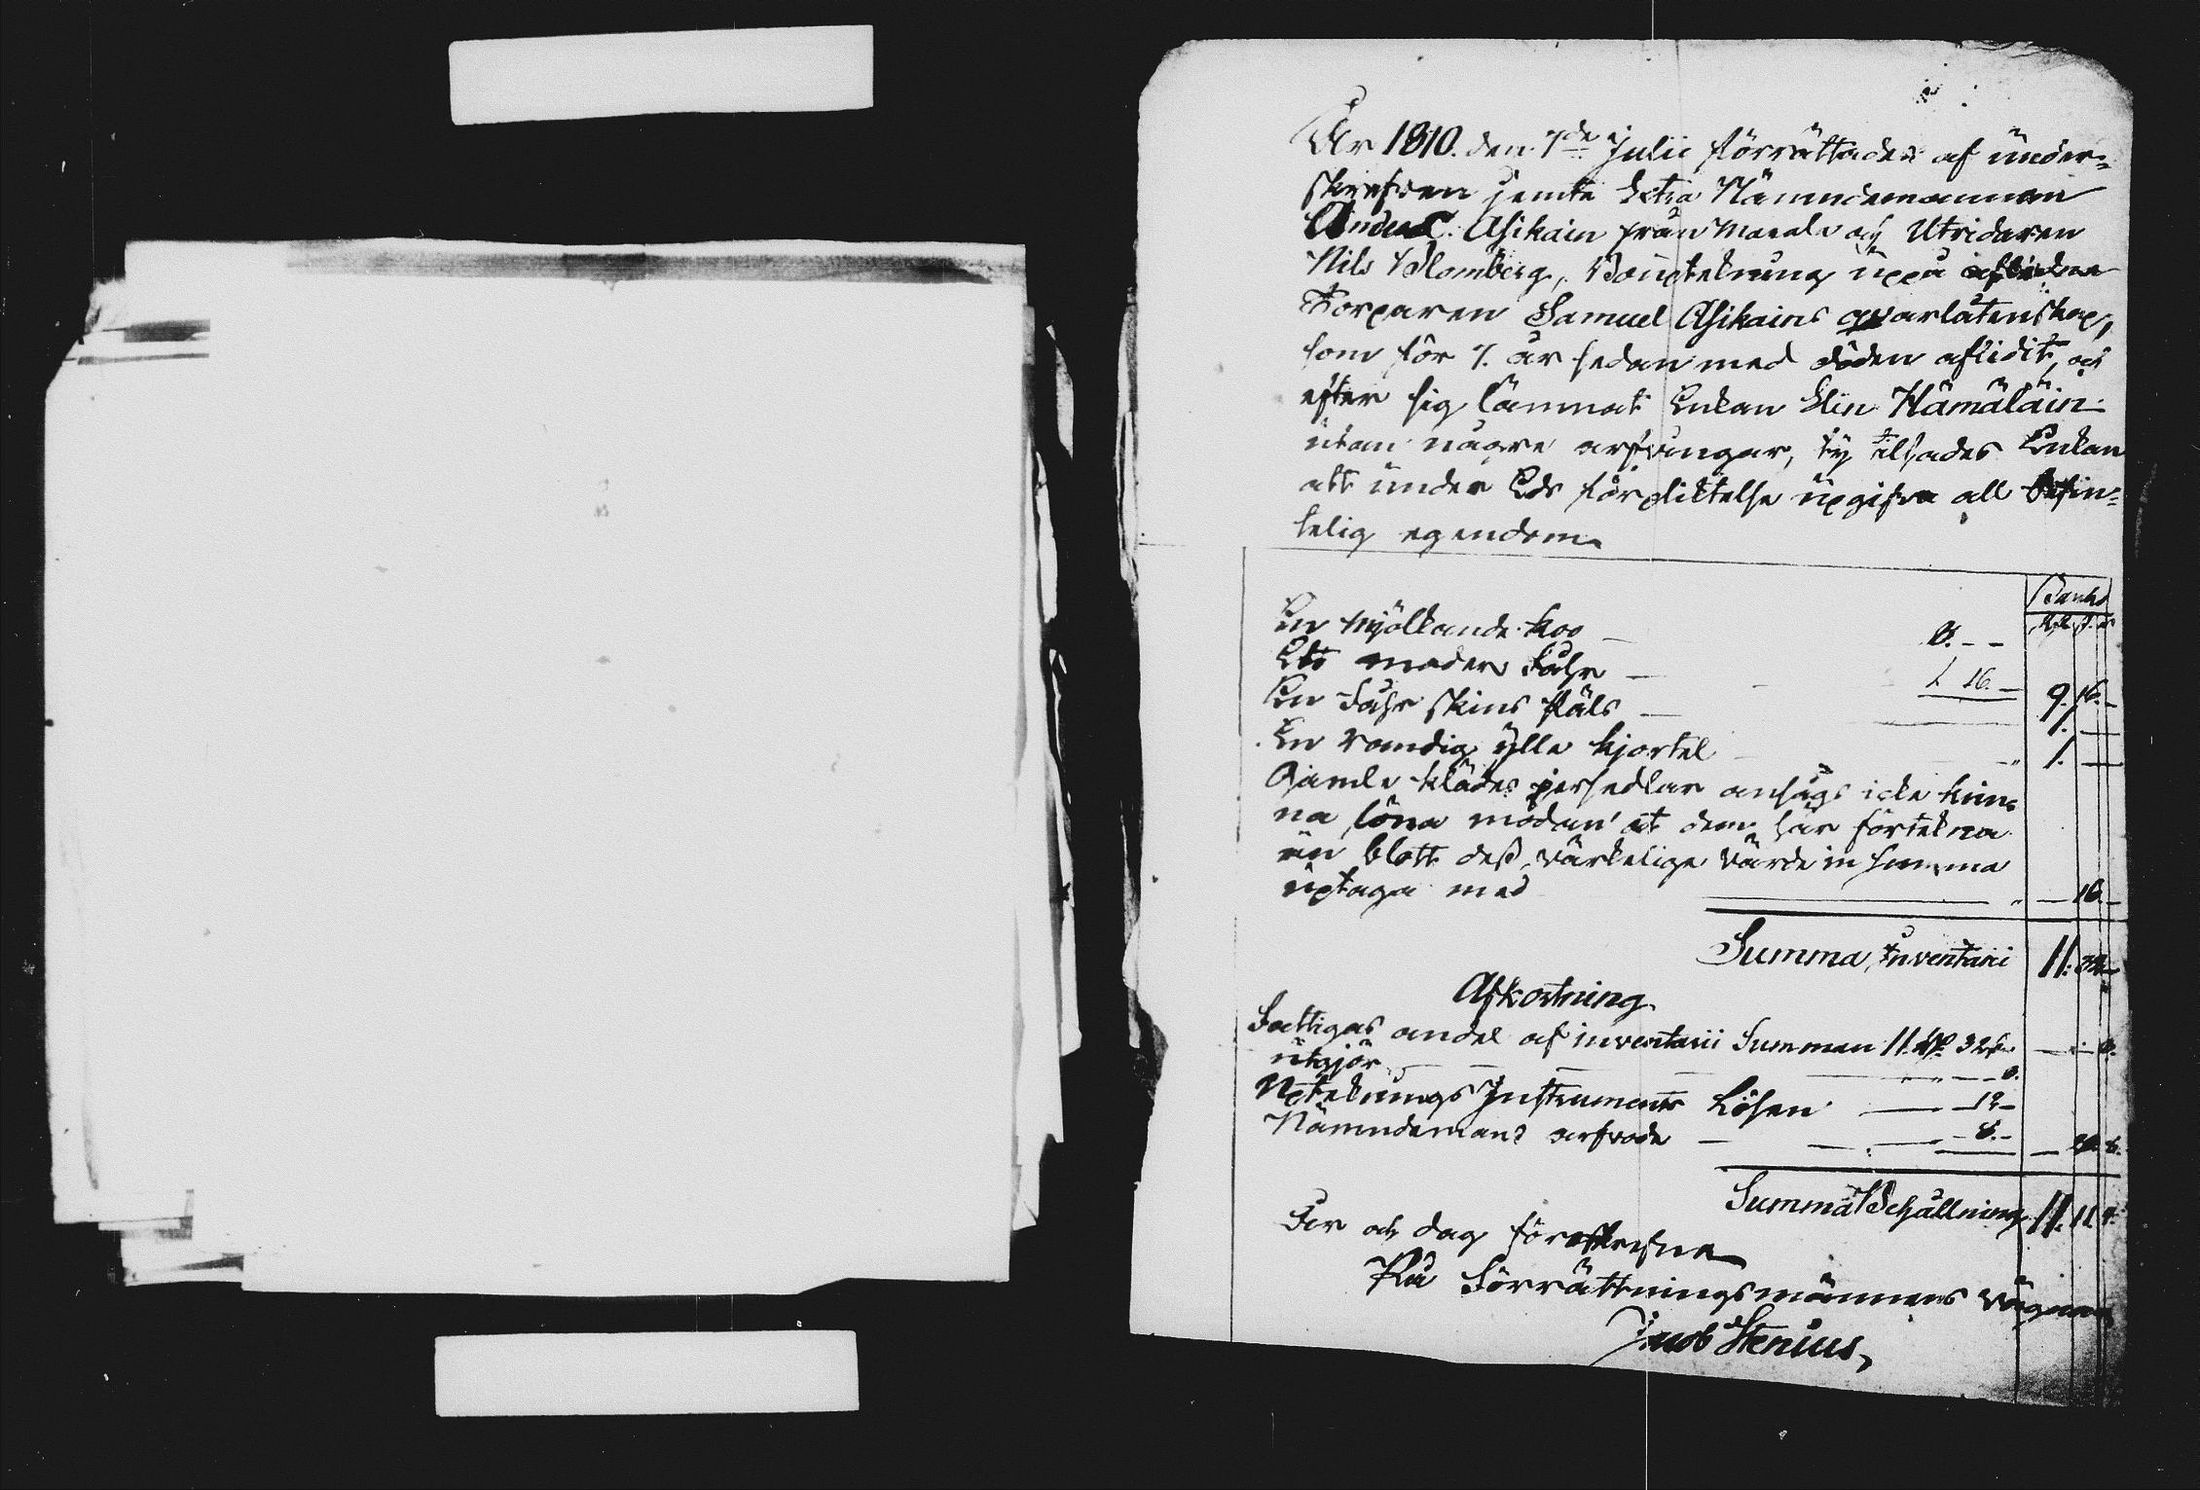 År 1810. den 7de Julii förrättades af under-
skrefven jemte Extra Nämndemannen
Anders Asikain från Maala och Utridaren
Nils Blomberg, Bouptekning uppå aflidne
Torparen Samuel Asikains qvarlåtenskap,
som för 7. år sedan med döden aflidit, och
efter sig lämnat Enkan Elin Hämäläin
utan några arfvingar, ty tilsades Enkan
att under Eds förpliktelse upgifva all befin-
telig egendom
Banko
En Mjölkande Koo 8. - -
Ett moder Fåhr 1. 16. - 9. 16. -
En Fåhr skins päls 1. -
En randig ylle kjortel 1. -
Gamle klädes persedlar ansågs icke kun-
na löna mödan at dem här förtekna
än blott dess värkelige värde in summa
uptaga med - 16. -
Summa Inventarii 11. 32. -
Afkortning
Fattigas andel af inventarii Summan 11. 32
utgör
Upteknings Instruments Lösen 12 -
Nämndemans arfvode 8. -
Summa Behållning 11. 11.
År och dag föreskrefne
På Förrättningsmännens vägnar
Jacob Stenius,